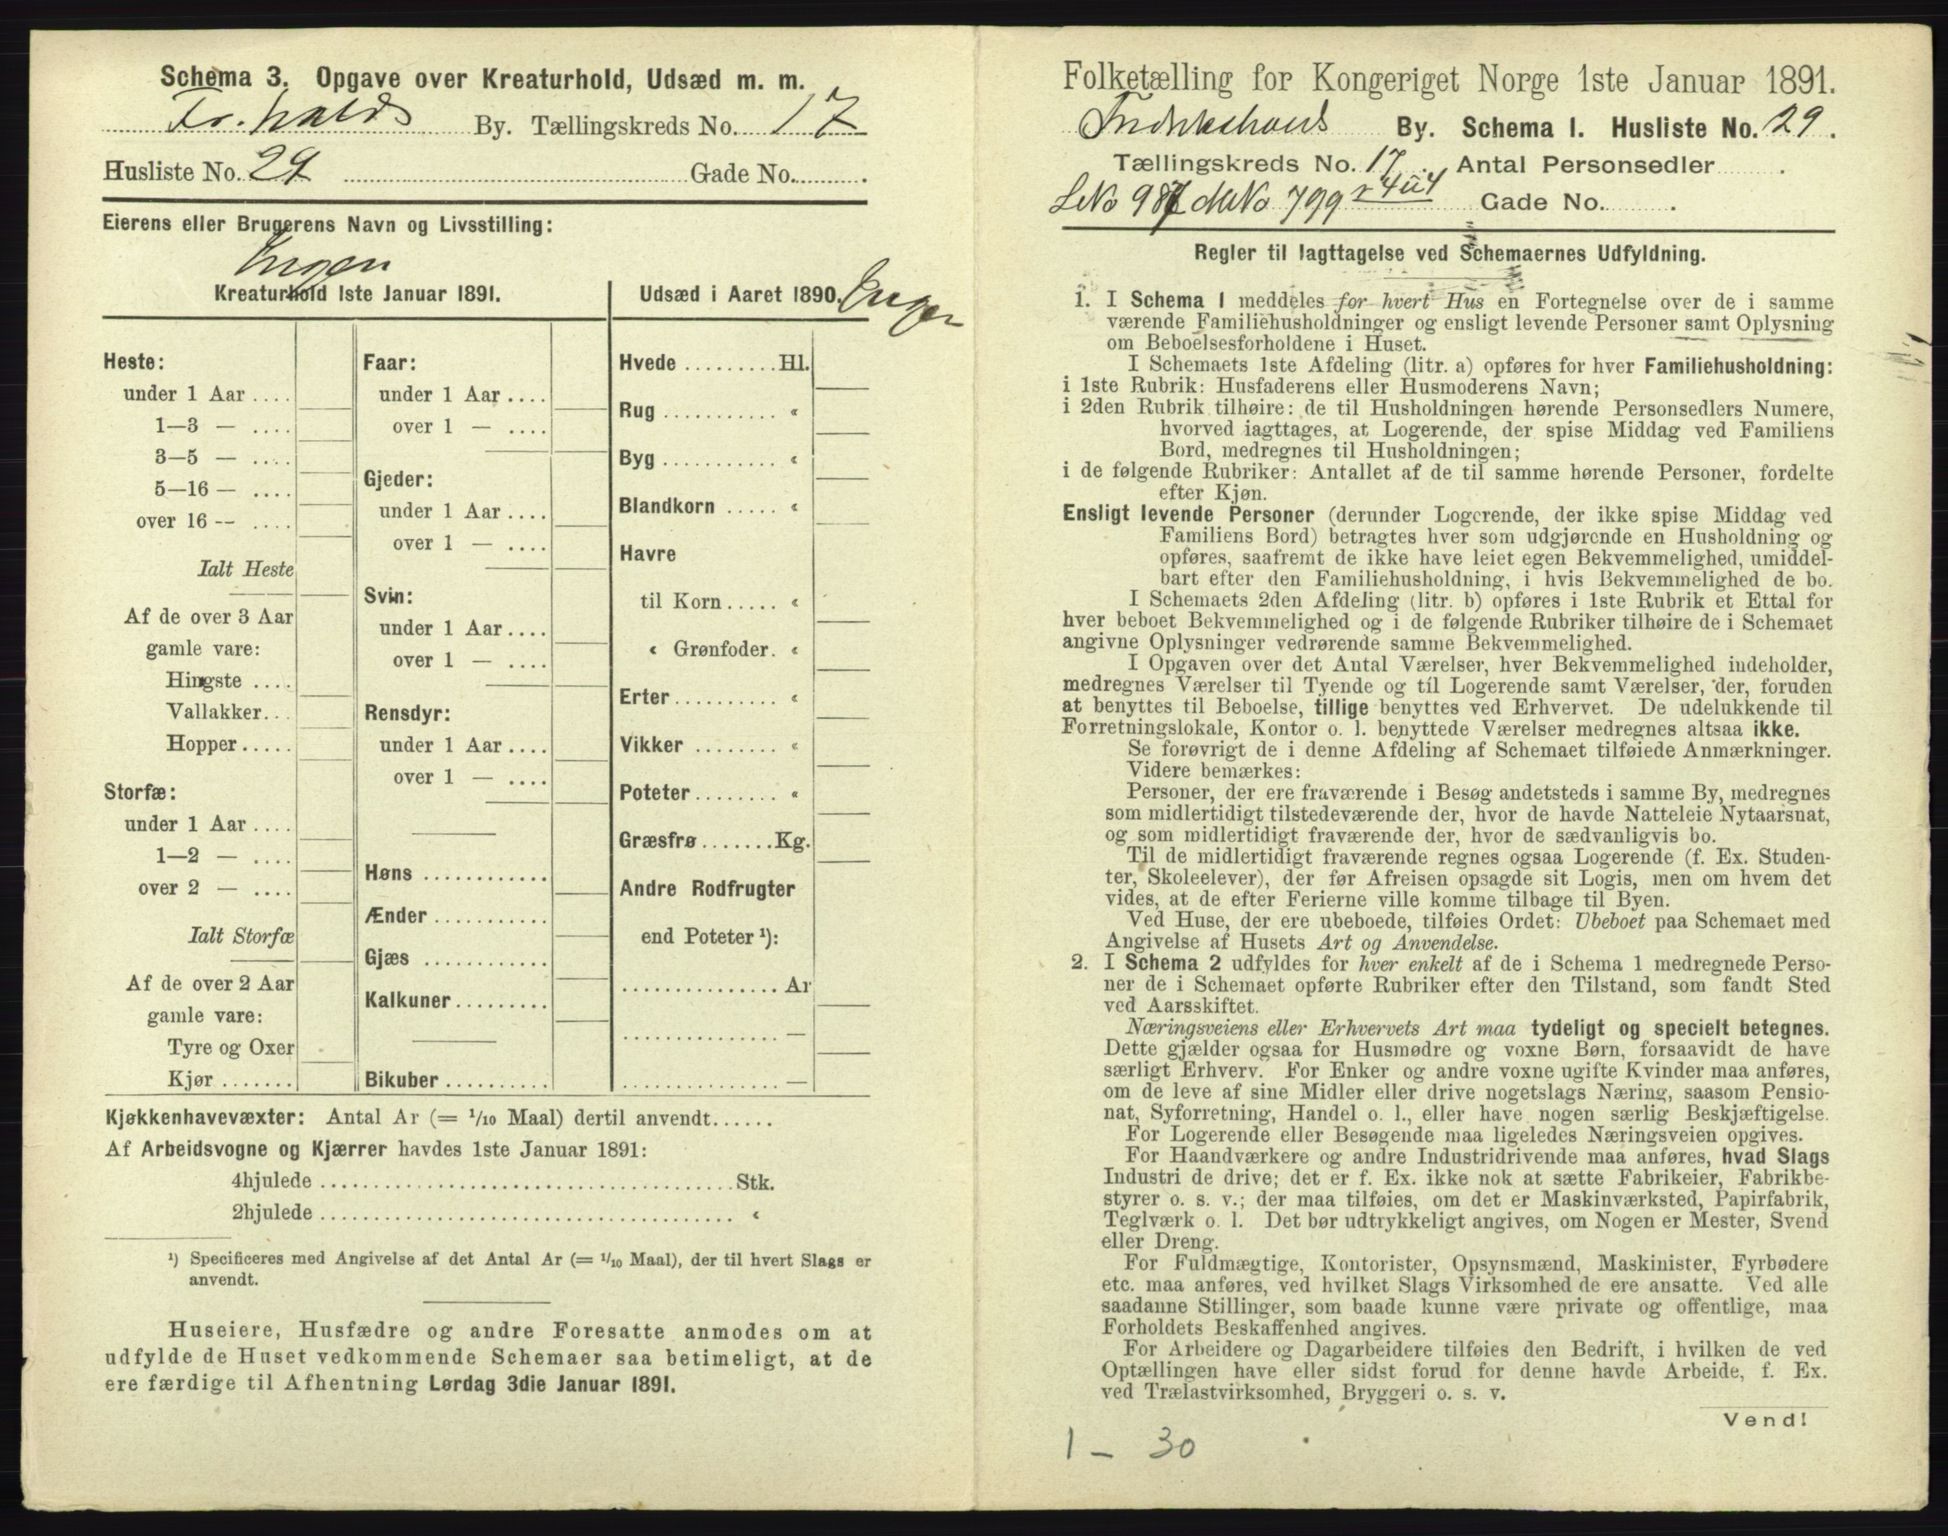 Schema 3. Opgave over Kreaturhold, Udsæd m. m.
Fr.halds By. Tællingskreds No. 17
Husliste No. 29 Gade No.
Eierens eller Brugerens Navn og Livsstilling:
Ingen
Kreaturhold 1ste Januar 1891.
Heste:
under 1 Aar ....
1—3 — ....
3—5 — ....
5—16 — ....
over 16 -- ....
Ialt Heste
Af de over 3 Aar
gamle vare:
Hingste ....
Vallakker...
Hopper.....
Storfæ:
under 1 Aar ....
1—2 — ....
over 2 — ....
Ialt Storfæ
Af de over 2 Aar
gamle vare:
Tyre og Oxer
Kjør .......
Faar:
under 1 Aar ....
over 1 — ....
Gjeder:
under 1 Aar ....
over 1 — ....
Svin:
under 1 Aar ....
over 1 — ....
Rensdyr:
under 1 Aar ....
over 1 — ....
Høns ............
Ænder ...........
Gjæs ............
Kalkuner.........
Bikuber ..........
Udsæd i Aaret 1890. Ingen
Hvede .........Hl.
Rug ........... «
Byg ........... «
Blandkorn ..... «
Havre
til Korn..... «
« Grønfoder. «
Erter.......... «
Vikker ........ «
Poteter........ «
Græsfrø.......Kg.
Andre Rodfrugter
end Poteter ¹):
...............Ar
...............—
...............—
Kjøkkenhavevæxter: Antal Ar (= 1/10 Maal) dertil anvendt......
Af Arbeidsvogne og Kjærrer havdes 1ste Januar 1891:
4hjulede ........................................Stk.
2hjulede ........................................ «
¹) Specificeres med Angivelse af det Antal Ar (= 1/10 Maal), der til hvert Slags er
anvendt.
Huseiere, Husfædre og andre Foresatte anmodes om at
udfylde de Huset vedkommende Schemaer saa betimeligt, at de
ere færdige til Afhentning Lørdag 3die Januar 1891.
Folketælling for Kongeriget Norge 1ste Januar 1891.
Fredrikshalds By. Schema 1. Husliste No. 29.
Tællingskreds No. 17. Antal Personsedler .
LNo 987 MNo 799 Gade No. .
Regler til Iagttagelse ved Schemaernes Udfyldning.
1. I Schema 1 meddeles for hvert Hus en Fortegnelse over de i samme
værende Familiehusholdninger og ensligt levende Personer samt Oplysning
om Beboelsesforholdene i Huset.
I Schemaets 1ste Afdeling (litr. a) opføres for hver Familiehusholdning:
i 1ste Rubrik: Husfaderens eller Husmoderens Navn;
i 2den Rubrik tilhøire: de til Husholdningen hørende Personsedlers Numere,
hvorved iagttages, at Logerende, der spise Middag ved Familiens
Bord, medregnes til Husholdningen;
i de følgende Rubriker: Antallet af de til samme hørende Personer, fordelte
efter Kjøn.
Ensligt levende Personer (derunder Logerende, der ikke spise Middag ved
Familiens Bord) betragtes hver som udgjørende en Husholdning og
opføres, saafremt de ikke have leiet egen Bekvemmelighed, umiddel-
bart efter den Familiehusholdning, i hvis Bekvemmelighed de bo.
I Schemaets 2den Afdeling (litr. b) opføres i 1ste Rubrik et Ettal for
hver beboet Bekvemmelighed og i de følgende Rubriker tilhøire de i Schemaet
angivne Oplysninger vedrørende samme Bekvemmelighed.
I Opgaven over det Antal Værelser, hver Bekvemmelighed indeholder,
medregnes Værelser til Tyende og til Logerende samt Værelser, der, foruden
at benyttes til Beboelse, tillige benyttes ved Erhvervet. De udelukkende til
Forretningslokale, Kontor o. l. benyttede Værelser medregnes altsaa ikke.
Se forøvrigt de i denne Afdeling af Schemaet tilføiede Anmærkninger.
Videre bemærkes:
Personer, der ere fraværende i Besøg andetsteds i samme By, medregnes
som midlertidigt tilstedeværende der, hvor de havde Natteleie Nytaarsnat,
og som midlertidigt fraværende der, hvor de sædvanligvis bo.
Til de midlertidigt fraværende regnes ogsaa Logerende (f. Ex. Studen-
ter, Skoleelever), der før Afreisen opsagde sit Logis, men om hvem det
vides, at de efter Ferierne ville komme tilbage til Byen.
Ved Huse, der ere ubeboede, tilføies Ordet: Ubeboet paa Schemaet med
Angivelse af Husets Art og Anvendelse.
2. I Schema 2 udfyldes for hver enkelt af de i Schema 1 medregnede Perso-
ner de i Schemaet opførte Rubriker efter den Tilstand, som fandt Sted
ved Aarsskiftet.
Næringsveiens eller Erhvervets Art maa tydeligt og specielt betegnes.
Dette gjælder ogsaa for Husmødre og voxne Børn, forsaavidt de have
særligt Erhverv. For Enker og andre voxne ugifte Kvinder maa anføres,
om de leve af sine Midler eller drive nogetslags Næring, saasom Pensio-
nat, Syforretning, Handel o. l., eller have nogen særlig Beskjæftigelse.
For Logerende eller Besøgende maa ligeledes Næringsveien opgives.
For Haandværkere og andre Industridrivende maa anføres, hvad Slags
Industri de drive; det er f. Ex. ikke nok at sætte Fabrikeier, Fabrikbe-
styrer o. s. v.; der maa tilføies, om det er Maskinværksted, Papirfabrik,
Teglværk o. l. Det bør udtrykkeligt angives, om Nogen er Mester, Svend
eller Dreng.
For Fuldmægtige, Kontorister, Opsynsmænd, Maskinister, Fyrbødere
etc. maa anføres, ved hvilket Slags Virksomhed de ere ansatte. Ved alle
saadanne Stillinger, som baade kunne være private og offentlige, maa
Forholdets Beskaffenhed angives.
For Arbeidere og Dagarbeidere tilføies den Bedrift, i hvilken de ved
Optællingen have eller sidst forud for denne havde Arbeide, f. Ex.
ved Trælastvirksomhed, Bryggeri o. s. v.
Vend!
1 — 30